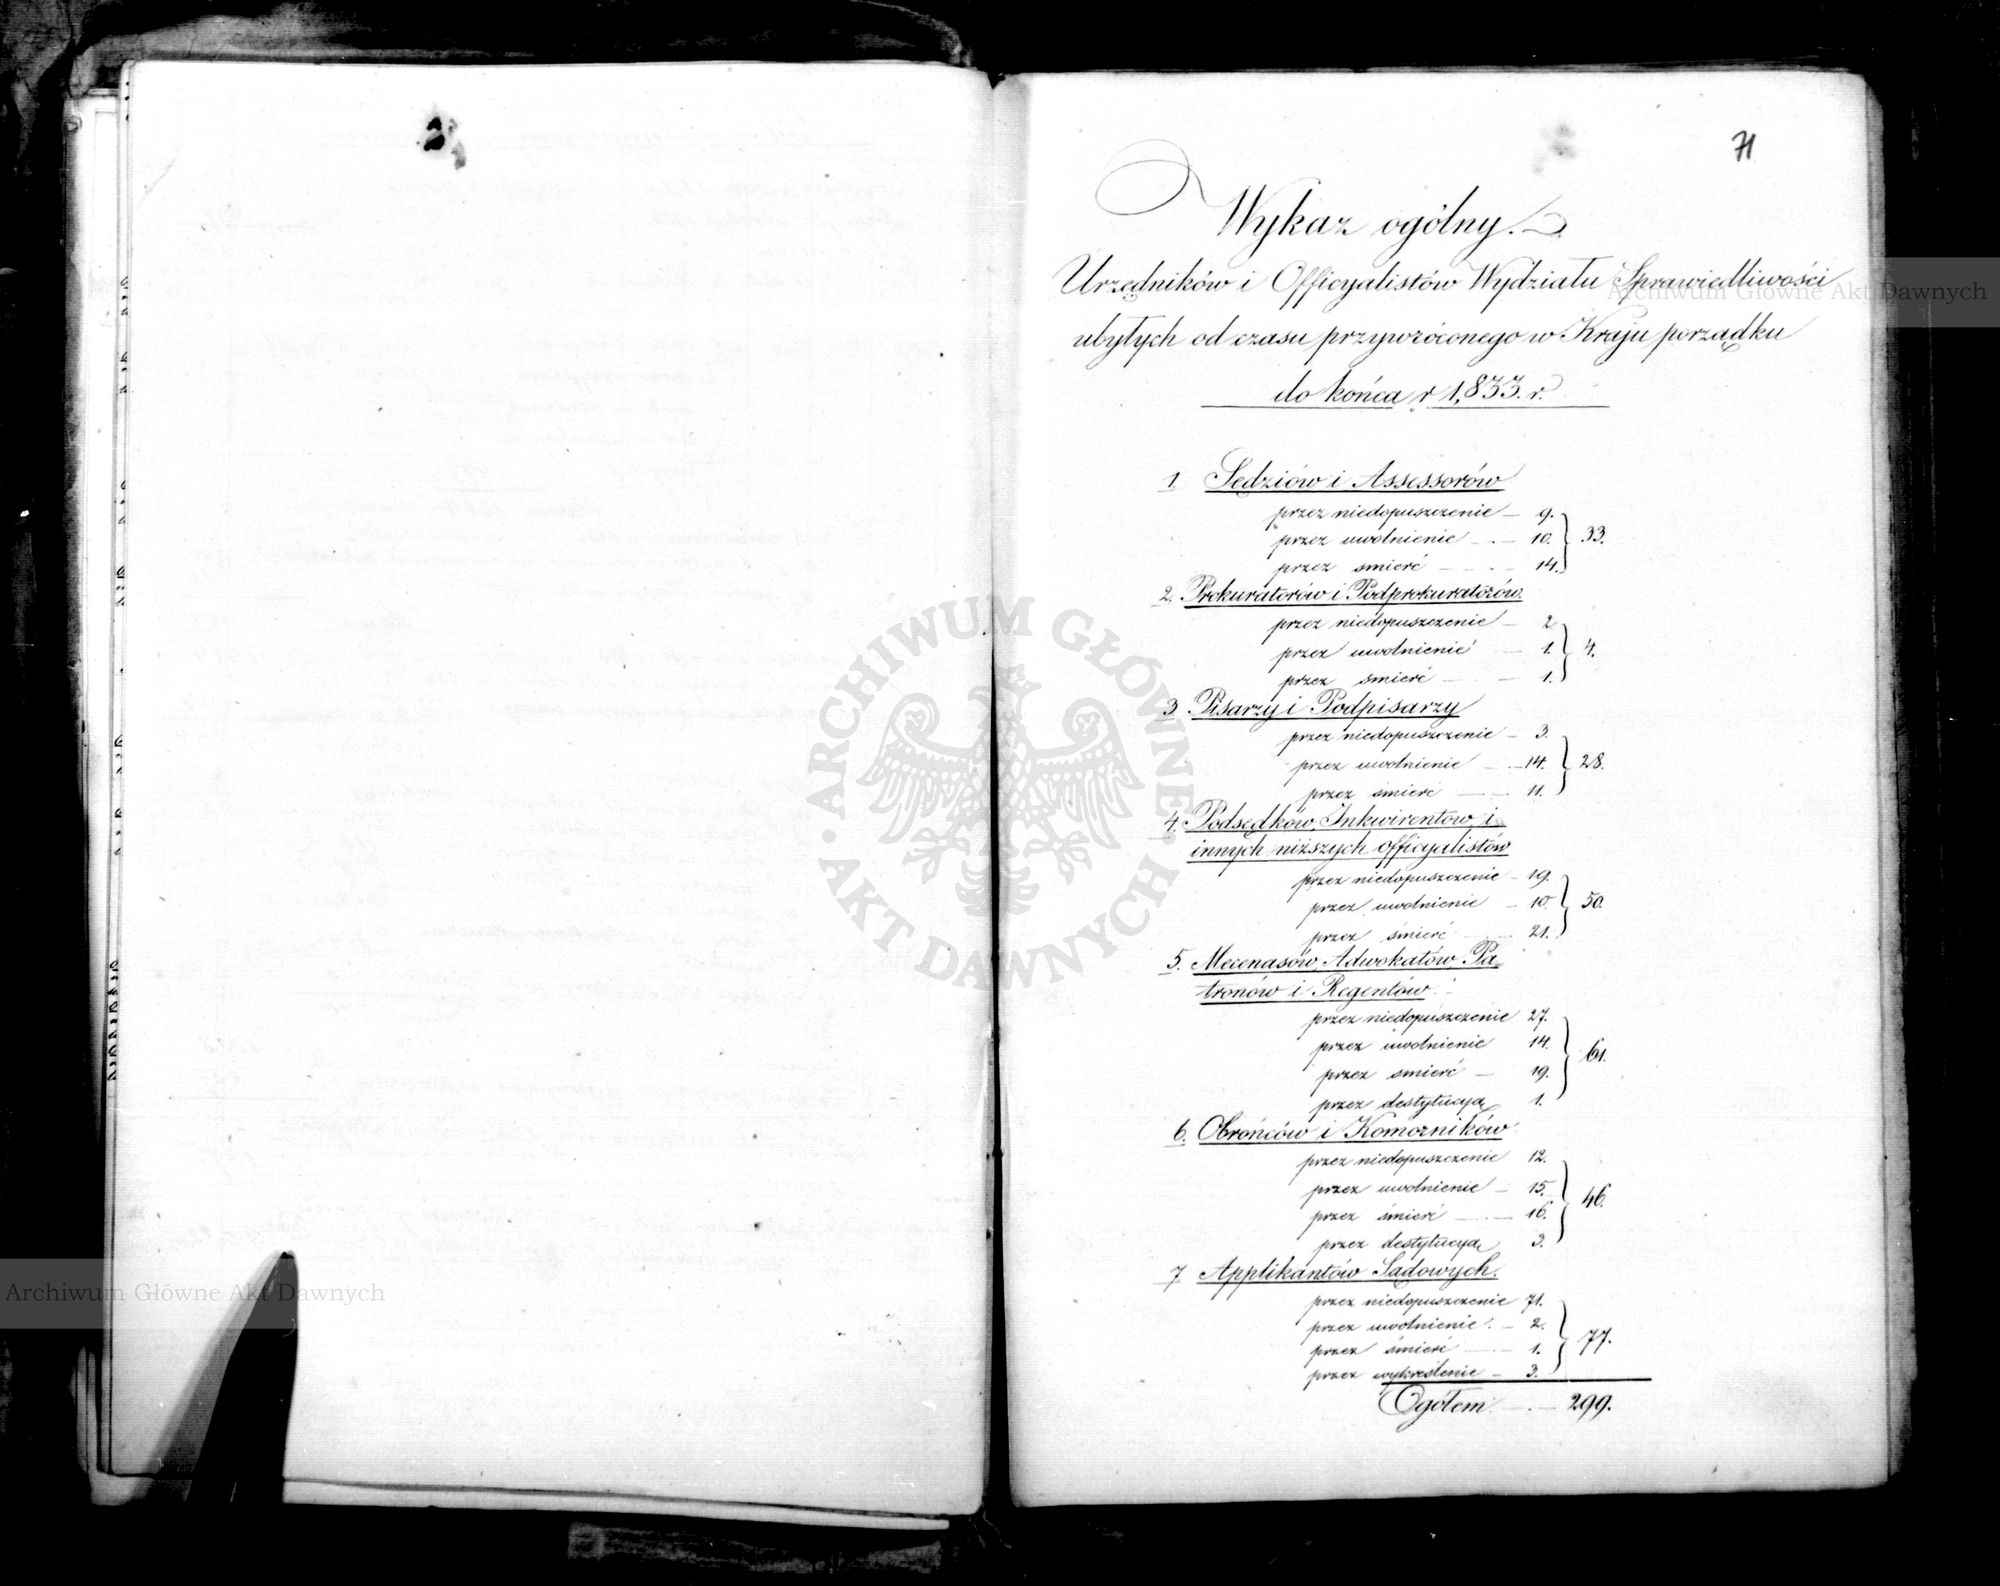 71
Wykaz ogólny.
Urzędników i Officyalistów Wydziału Sprawiedliwości
ubyłych od czasu przywróconego w Kraju porządku
do końca r 1,833. r.
1. Sędziów i Assessorów
przez niedopuszczenie — 9.
przez uwolnienie — . — 10. } 33.
przez śmierć — — . — 14.
2. Prokuratorów i Podprokuratorów.
przez niedopuszczenie — 2
przez uwolnienie — 1. } 4.
przez śmierć — . — 1.
3 Pisarzy i Podpisarzy
przez niedopuszczenie — 3.
przez uwolnienie — . — 14. } 28.
przez śmierć — . — 11.
4. Podsędków, Inkwirentów, i
innych niższych officyalistów
przez niedopuszczenie — 19.
przez uwolnienie — 10. } 50.
przez śmierć — . — 21.
5. Mecenasów, Adwokatów, Pa-
tronów i Regentów.
przez niedopuszczenie 27.
przez uwolnienie 14. } 61.
przez śmierć — 19.
przez destytucyą 1.
6. Obrońców i Komorników
przez niedopuszczenie 12.
przez uwolnienie — 15. } 46.
przez śmierć — . — 16.
przez destytucyą 3.
7 Applikantów Sądowych.
przez niedopuszczenie 71.
przez uwolnienie. — 2. } 77.
przez śmierć — . — 1.
przez wykreślenie — 3.
Ogółem — . — 299.
Archiwum Główne Akt Dawnych
ARCHIWUM GŁÓWNE • AKT DAWNYCH •
Archiwum Główne Akt Dawnych